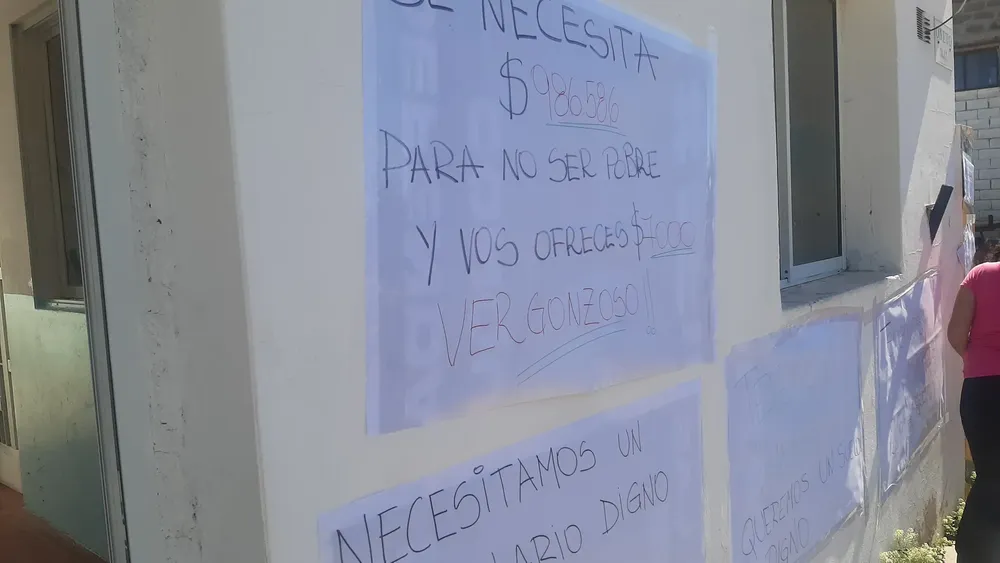 SE NECESITA
$986.586
PARA NO SER POBRE
Y VOS OFRECES $7000
VERGONZOSO!!
NECESITAMOS UN
DIGNO
QUEREMOS UN
DIGNO